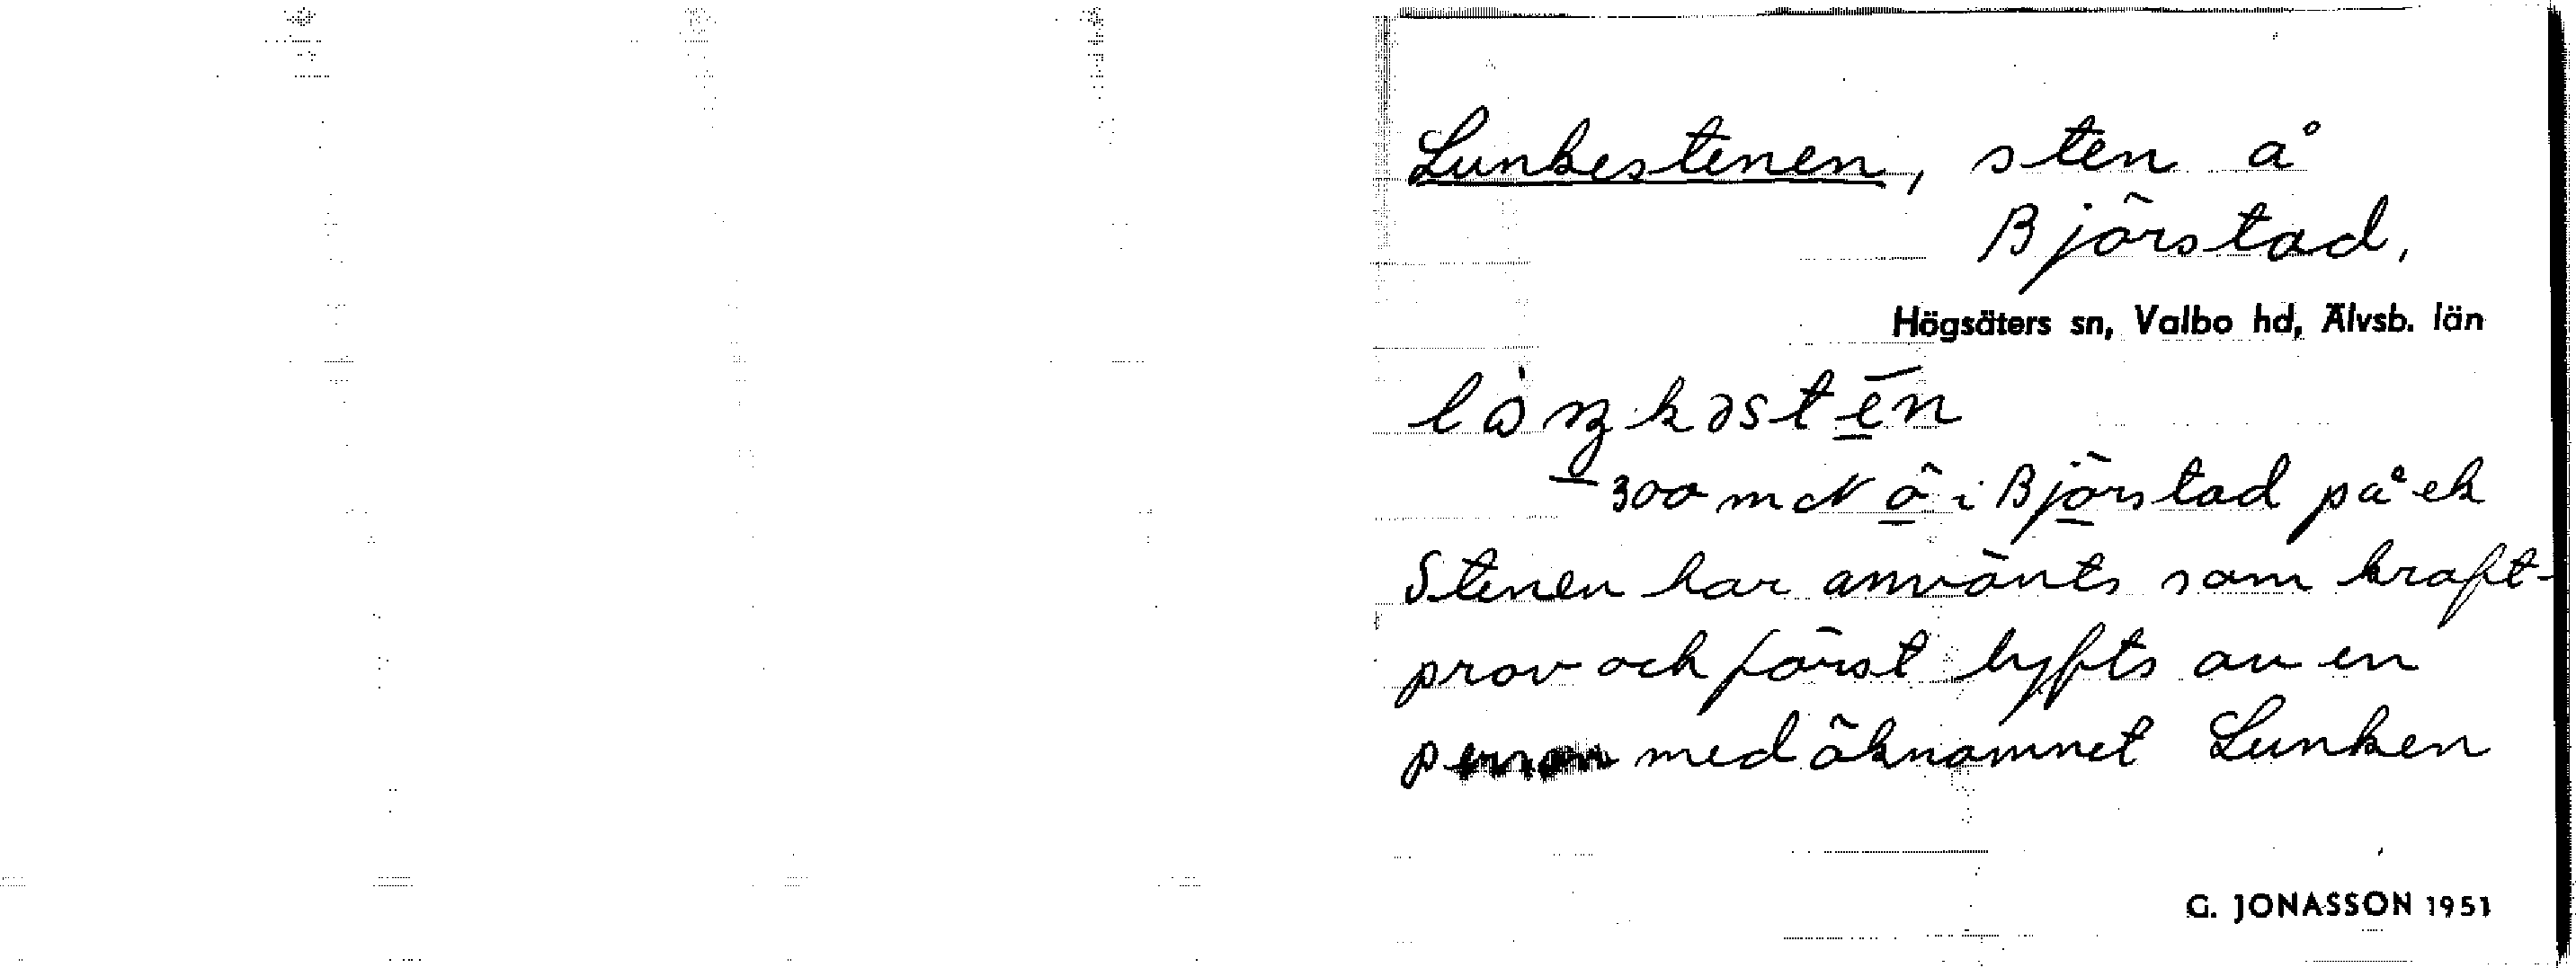 Lunkestenen, sten å
Björstad,
Högsäters sn, Valbo hd, Älvsb. län
300 m N ö i Björstad på ek
Stenen har använts som kraft-
prov och först lyfts av en
person med öknamnet Lunken
G. JONASSON 1951